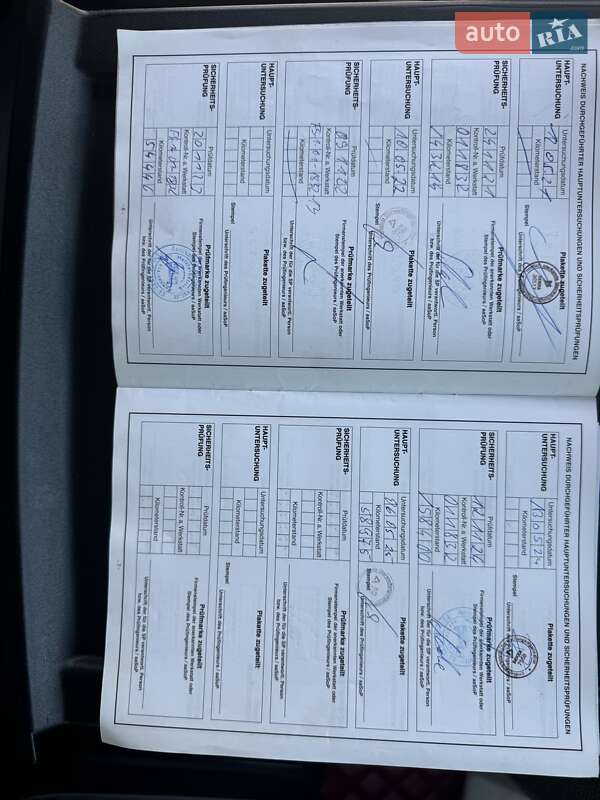 auto RIA.com
NACHWEIS DURCHGEFÜHRTER HAUPTUNTERSUCHUNGEN UND SICHERHEITSPRÜFUNGEN
HAUPT-
UNTERSUCHUNG
Untersuchungsdatum
Kilometerstand
Stempel
Plakette zugeteilt
Unterschrift des Prüfingenieurs / aaSoP
SICHERHEITS-
PRÜFUNG
Prüfdatum
24 11 21
Kontroll-Nr. a. Werkstatt
Kilometerstand
Prüfmarke zugeteilt
Firmenstempel der anerkannten Werkstatt oder
Stempel des Prüfingenieurs / aaSoP
Unterschrift der für die SP verantwortl. Person
bzw. des Prüfingenieurs / aaSoP
HAUPT-
UNTERSUCHUNG
Untersuchungsdatum
10 05 22
Kilometerstand
Stempel
Plakette zugeteilt
Unterschrift des Prüfingenieurs / aaSoP
SICHERHEITS-
PRÜFUNG
Prüfdatum
Kontroll-Nr. a. Werkstatt
Kilometerstand
Prüfmarke zugeteilt
Firmenstempel der anerkannten Werkstatt oder
Stempel des Prüfingenieurs / aaSoP
Unterschrift der für die SP verantwortl. Person
bzw. des Prüfingenieurs / aaSoP
HAUPT-
UNTERSUCHUNG
Untersuchungsdatum
Kilometerstand
Stempel
Plakette zugeteilt
Unterschrift des Prüfingenieurs / aaSoP
SICHERHEITS-
PRÜFUNG
Prüfdatum
Kontroll-Nr. a. Werkstatt
Kilometerstand
54446
Prüfmarke zugeteilt
Firmenstempel der anerkannten Werkstatt oder
Stempel des Prüfingenieurs / aaSoP
Unterschrift der für die SP verantwortl. Person
bzw. des Prüfingenieurs / aaSoP
NACHWEIS DURCHGEFÜHRTER HAUPTUNTERSUCHUNGEN UND SICHERHEITSPRÜFUNGEN
HAUPT-
UNTERSUCHUNG
Untersuchungsdatum
13 05 24
Kilometerstand
Stempel
Plakette zugeteilt
Unterschrift des Prüfingenieurs / aaSoP
SICHERHEITS-
PRÜFUNG
Prüfdatum
Kontroll-Nr. a. Werkstatt
Kilometerstand
Prüfmarke zugeteilt
Firmenstempel der anerkannten Werkstatt oder
Stempel des Prüfingenieurs / aaSoP
Unterschrift der für die SP verantwortl. Person
bzw. des Prüfingenieurs / aaSoP
HAUPT-
UNTERSUCHUNG
Untersuchungsdatum
Kilometerstand
Stempel
Plakette zugeteilt
Unterschrift des Prüfingenieurs / aaSoP
SICHERHEITS-
PRÜFUNG
Prüfdatum
Kontroll-Nr. a. Werkstatt
Kilometerstand
Prüfmarke zugeteilt
Firmenstempel der anerkannten Werkstatt oder
Stempel des Prüfingenieurs / aaSoP
Unterschrift der für die SP verantwortl. Person
bzw. des Prüfingenieurs / aaSoP
HAUPT-
UNTERSUCHUNG
Untersuchungsdatum
Kilometerstand
Stempel
Plakette zugeteilt
Unterschrift des Prüfingenieurs / aaSoP
SICHERHEITS-
PRÜFUNG
Prüfdatum
Kontroll-Nr. a. Werkstatt
Kilometerstand
Prüfmarke zugeteilt
Firmenstempel der anerkannten Werkstatt oder
Stempel des Prüfingenieurs / aaSoP
Unterschrift der für die SP verantwortl. Person
bzw. des Prüfingenieurs / aaSoP